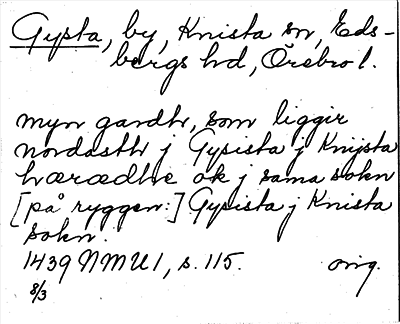 Gysta, by, Knista sn, Eds-
bergs hd, Örebro l.
myn gardh, som liggir
nordasth j Gysista j Knijsta
hærædhe ok j sama sokn
[på ryggen:] Gysista j Knista
sokn.
1439 NMU 1, s. 115. orig.
8/3